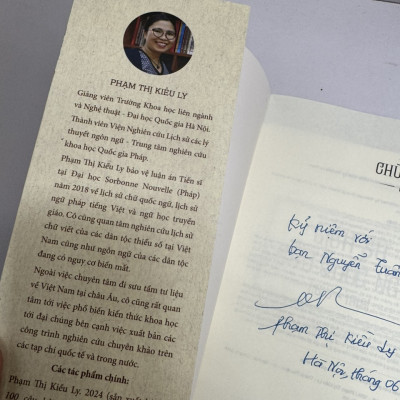 PHẠM THỊ KIỀU LY
Giảng viên Trường Khoa học liên ngành
và Nghệ thuật - Đại học Quốc gia Hà Nội.
Thành viên Viện Nghiên cứu Lịch sử các lý
thuyết ngôn ngữ - Trung tâm nghiên cứu
khoa học Quốc gia Pháp.
Phạm Thị Kiều Ly bảo vệ luận án Tiến sĩ
tại Đại học Sorbonne Nouvelle (Pháp)
năm 2018 về lịch sử chữ quốc ngữ, lịch sử
ngữ pháp tiếng Việt và ngữ học truyền
giáo. Cô cũng quan tâm nghiên cứu lịch sử
chữ viết của các dân tộc thiểu số tại Việt
Nam cũng như ngôn ngữ của các dân tộc
đang có nguy cơ biến mất.
Ngoài việc chuyên tâm đi sưu tầm tư liệu
về Việt Nam tại châu Âu, cô cũng rất quan
tâm tới việc phổ biến kiến thức khoa học
tới đại chúng bên cạnh việc xuất bản các
công trình nghiên cứu chuyên khảo trên
các tạp chí quốc tế và trong nước.
Các tác phẩm chính:
Phạm Thị Kiều Ly, 2024
CHỮ
Kỷ niệm với
bạn Nguyễn Tuấn
Phạm Thị Kiều Ly
Hà Nội, tháng 06